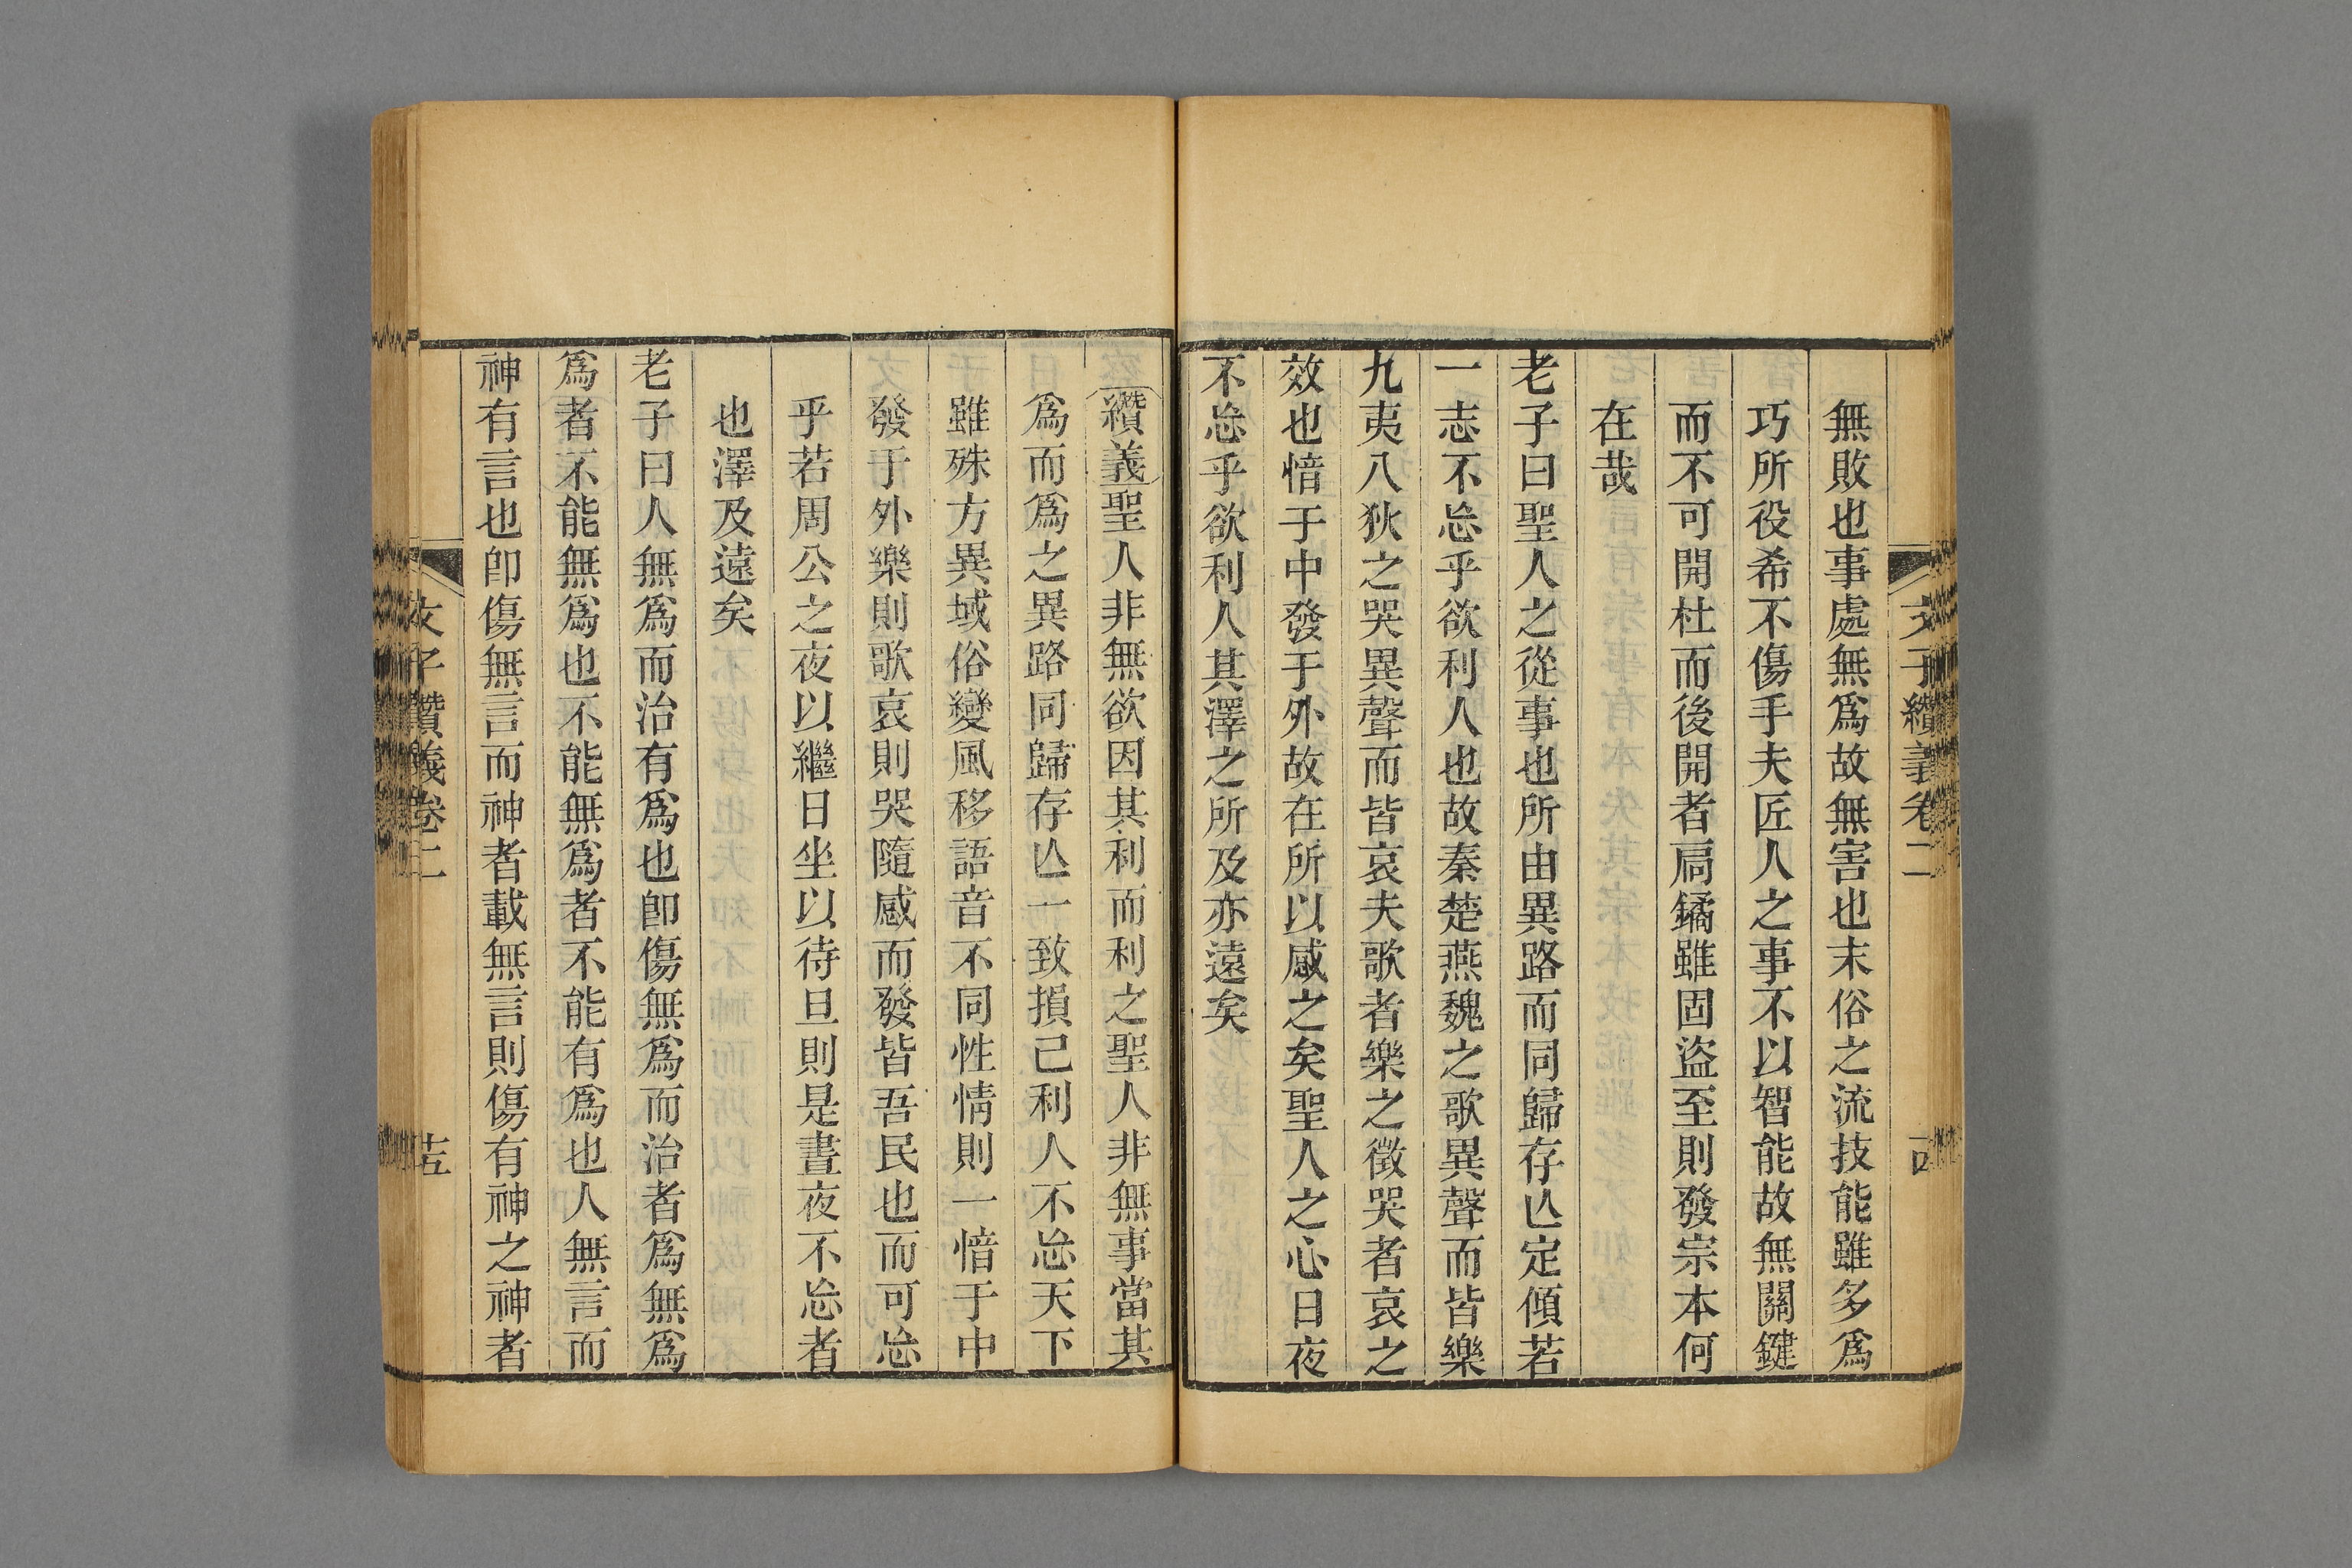 文子纘義卷二
十四
無敗也事處無爲故無害也末俗之流技能雖多爲
巧所役希不傷手夫匠人之事不以智能故無關鍵
而不可開杜而後開者扃鐍雖固盜至則發宗本何
在哉
老子曰聖人之從事也所由異路而同歸存亾定傾若
一志不㤀乎欲利人也故秦楚燕魏之歌異聲而皆樂
九夷八狄之哭異聲而皆哀夫歌者樂之徵哭者哀之
效也愔于中發于外故在所以感之矣聖人之心日夜
不㤀乎欲利人其澤之所及亦遠矣
纘義聖人非無欲因其利而利之聖人非無事當其
爲而爲之異路同歸存亾一致損己利人不㤀天下
雖殊方異域俗變風移語音不同性情則一愔于中
發于外樂則歌哀則哭隨感而發皆吾民也而可㤀
乎若周公之夜以繼日坐以待旦則是晝夜不㤀者
也澤及遠矣
老子曰人無爲而治有爲也卽傷無爲而治者爲無爲
爲者不能無爲也不能無爲者不能有爲也人無言而
神有言也卽傷無言而神者載無言則傷有神之神者
文子纘義卷二
十五